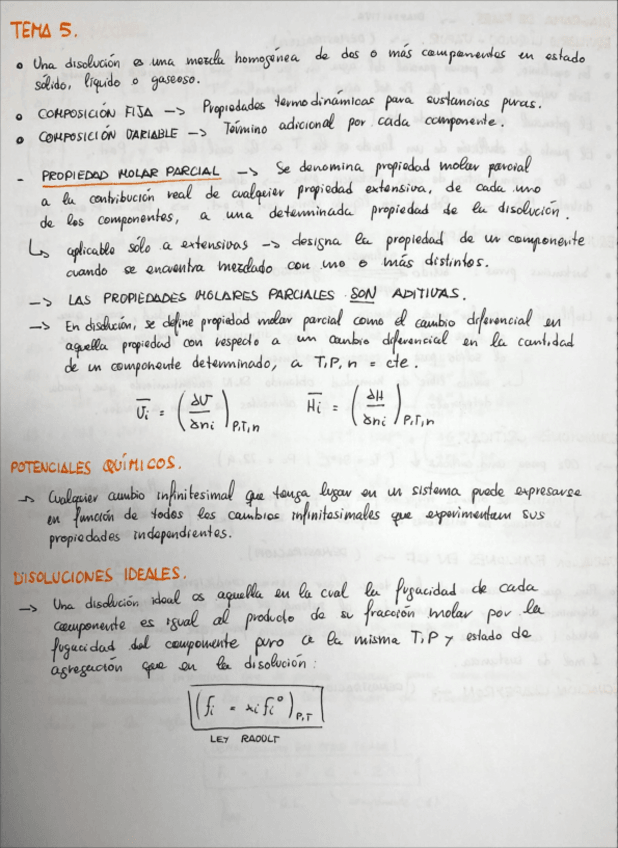 TEMA 5.
• Una disolución es una mezcla homogénea de dos o más componentes en estado
sólido, líquido o gaseoso.
• COMPOSICIÓN FIJA —> Propiedades termodinámicas para sustancias puras.
• COMPOSICIÓN VARIABLE —> Término adicional por cada componente.
- PROPIEDAD MOLAR PARCIAL —> Se denomina propiedad molar parcial
a la contribución real de cualquier propiedad extensiva, de cada uno
de los componentes, a una determinada propiedad de la disolución.
↳ aplicable sólo a extensivas —> designa la propiedad de un componente
cuando se encuentra mezclado con uno o más distintos.
—> LAS PROPIEDADES MOLARES PARCIALES SON ADITIVAS.
—> En disolución, se define propiedad molar parcial como el cambio diferencial en
aquella propiedad con respecto a un cambio diferencial en la cantidad
de un componente determinado, a T,P,n = cte.
Ūi = (∂U/∂ni)P,T,n H̄i = (∂H/∂ni)P,T,n
POTENCIALES QUÍMICOS.
—> Cualquier cambio infinitesimal que tenga lugar en un sistema puede expresarse
en función de todos los cambios infinitesimales que experimentan sus
propiedades independientes.
DISOLUCIONES IDEALES.
—> Una disolución ideal es aquella en la cual la fugacidad de cada
componente es igual al producto de su fracción molar por la
fugacidad del componente puro a la misma T,P y estado de
agregación que en la disolución:
(fi = xi fi°)P,T
LEY RAOULT